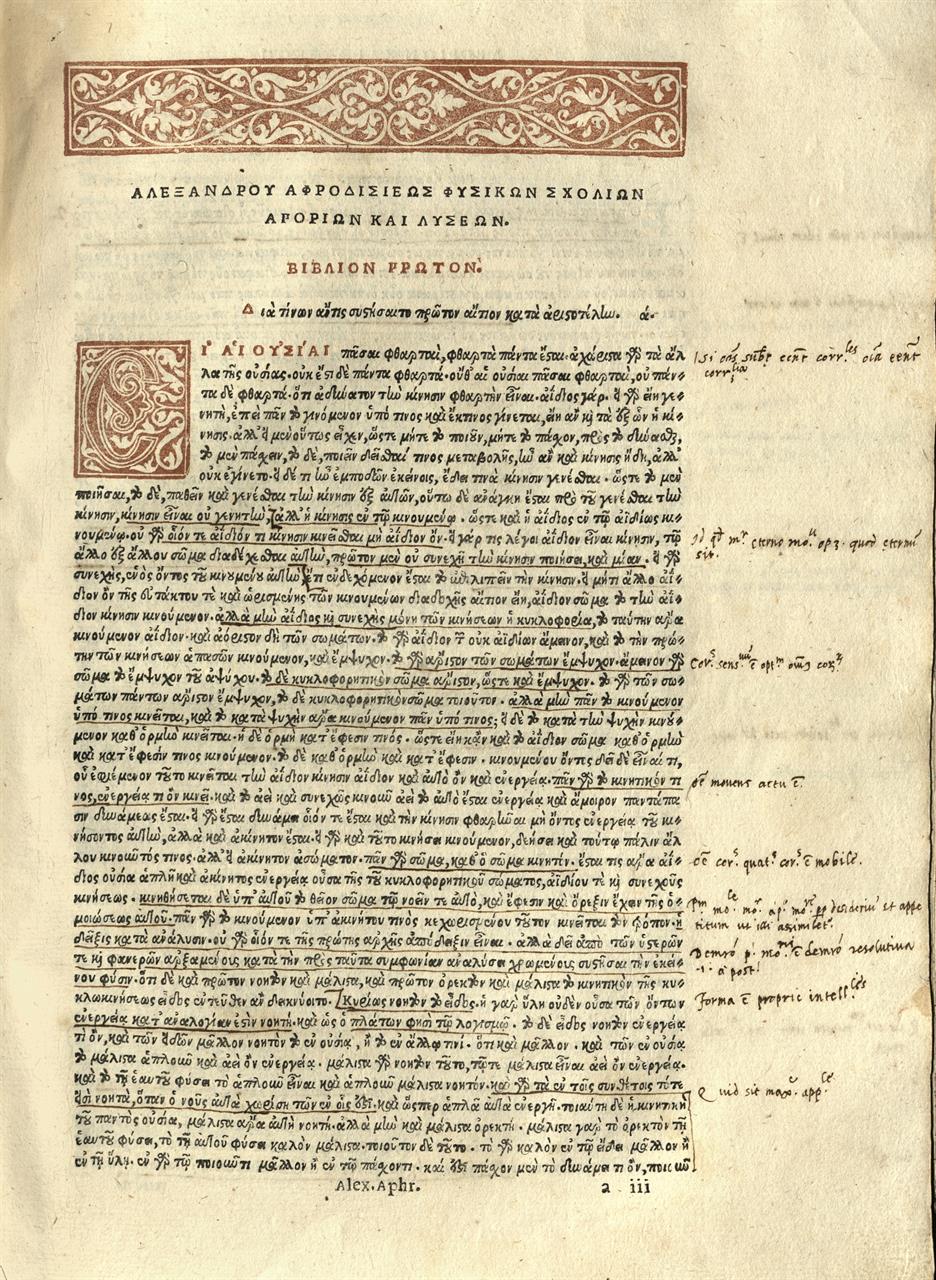 ΑΛΕΞΑΝΔΡΟΥ ΑΦΡΟΔΙΣΙΕΩΣ ΦΥΣΙΚΩΝ ΣΧΟΛΙΩΝ
ΑΠΟΡΙΩΝ ΚΑΙ ΛΥΣΕΩΝ.
ΒΙΒΛΙΟΝ ΠΡΩΤΟΝ.
Διὰ τίνων ἄν τις συστήσαιτο πρῶτον αἴτιον κατὰ ἀριστοτέλην. ά.
ΕΙ ΑΙ ΟΥΣΙΑΙ πᾶσαι φθαρταὶ, φθαρτὰ πάντα ἔσται. ἀχώριστα γὰρ τὰ ἄλ-
λα τῆς οὐσίας. οὐκ ἔστι δὲ πάντα φθαρτά. οὔθ' αἱ οὐσίαι πᾶσαι φθαρταὶ, οὐ πάν-
τα δὲ φθαρτά. ὅτι ἀδύνατον τὴν κίνησιν φθαρτὴν εἶναι. ἀΐδιος γάρ. εἰ γὰρ εἴη γε-
νητὴ, ἐπεὶ πᾶν τὸ γινόμενον ὑπό τινος καὶ ἔκ τινος γίνεται, εἴη ἂν καὶ τὰ ἐξ ὧν ἡ κί-
νησις. ἀλλ' εἰ μὲν οὕτως εἶχεν, ὥστε μήτε τὸ ποιοῦν, μήτε τὸ πάσχον, πρὸς τὸ δύνασθαι,
τὸ μὲν πάσχειν, τὸ δὲ, ποιεῖν δεῖσθαί τινος μεταβολῆς, ἦν ἂν καὶ κίνησις ἤδη, ἀλλ'
οὐκ ἐγίνετο. εἰ δέ τι ἦν ἐμποδὼν ἐκείνοις, ἔδει τινὰ κίνησιν γενέσθαι. ὥστε τὸ μὲν
ποιῆσαι, τὸ δὲ, παθεῖν καὶ γενέσθαι τὴν κίνησιν ἐξ αὐτῶν, οὕτω δὲ ἀνάγκη ἔσται πρὸ τοῦ γενέσθαι τὴν
κίνησιν, κίνησιν εἶναι οὐ γενητὴν, ἀλλ' ἡ κίνησις ἐν τῷ κινουμένῳ. ὥστε καὶ ἡ ἀΐδιος ἐν τῷ ἀϊδίως κι-
νουμένῳ. οὐ γὰρ οἷόν τε ἀΐδιόν τι κίνησιν κινεῖσθαι μὴ ἀΐδιον ὄν. εἰ γάρ τις λέγοι ἀΐδιον εἶναι κίνησιν, τῷ
ἄλλο ἐξ ἄλλου σῶμα διαδέχεσθαι αὐτὴν, πρῶτον μὲν οὐ συνεχῆ τὴν κίνησιν ποιήσει, καὶ μίαν. εἰ γὰρ
συνεχὴς, ἑνὸς ὄντος τοῦ κινουμένου αὐτὴν ἔτι ἐνδεχόμενον ἔσται τὸ ἐπιλιπεῖν τὴν κίνησιν. εἰ μή τι ἄλλο ἀΐ-
διον ὂν τῆς εὐτάκτου τε καὶ ὡρισμένης τῶν κινουμένων διαδοχῆς αἴτιον εἴη, ἀΐδιον σῶμα τὸ τὴν ἀΐ-
διον κίνησιν κινούμενον. ἀλλὰ μὴν ἀΐδιος καὶ συνεχὴς μόνη τῶν κινήσεων ἡ κυκλοφορία, τὸ ταύτην ἄρα
κινούμενον ἀΐδιον. καὶ ἄριστον δὴ τῶν σωμάτων. τὸ γὰρ ἀΐδιον τοῦ οὐκ ἀϊδίου ἄμεινον, καὶ τὸ τὴν πρώ-
την τῶν κινήσεων ἁπασῶν κινούμενον, καὶ ἔμψυχον. τὸ γὰρ ἄριστον τῶν σωμάτων ἔμψυχον. ἄμεινον γὰρ
σῶμα τὸ ἔμψυχον τοῦ ἀψύχου. τὸ δὲ κυκλοφορητικὸν σῶμα ἄριστον, ὥστε καὶ ἔμψυχον. τὸ γὰρ τῶν σω-
μάτων πάντων ἄριστον ἔμψυχον, τὸ δὲ κυκλοφορητικὸν σῶμα τοιοῦτον. ἀλλὰ μὴν πᾶν τὸ κινούμενον
ὑπό τινος κινεῖται, καὶ τὸ κατὰ ψυχὴν ἄρα κινούμενον πᾶν ὑπό τινος; εἰ δὲ τὸ κατὰ τὴν ψυχὴν κινού-
μενον καθ' ὁρμὴν κινεῖται. ἡ δὲ ὁρμὴ κατ' ἔφεσίν τινος. ὥστε εἴη κᾂν καὶ τὸ ἀΐδιον σῶμα καθ' ὁρμὴν
καὶ κατ' ἔφεσίν τινος κινούμενον. τὸ δὲ καθ' ὁρμὴν καὶ κατ' ἔφεσιν. κινουμένου ὄντις δεῖ δὲ εἶναί τι,
οὗ ἐφιέμενον τοῦτο κινεῖται τὴν ἀΐδιον κίνησιν ἀΐδιον καὶ αὐτὸ ὂν καὶ ἐνεργείᾳ. πᾶν γὰρ τὸ κινητικόν τι
νος, ἐνεργείᾳ τι ὂν κινεῖ. καὶ τὸ ἀεὶ καὶ συνεχῶς κινοῦν ἀεὶ τὸ αὐτὸ ἔσται ἐνεργείᾳ καὶ ἄμοιρον παντάπα
σιν δυνάμεως ἔσται. εἰ γὰρ ἔσται δυνάμει οἷόν τε ἔσται καὶ τὴν κίνησιν φθαρῆναι μὴ ὄντος ἐνεργείᾳ τοῦ κι-
νήσοντος αὐτὴν, ἀλλὰ καὶ ἀκίνητον ἔσται. εἰ γὰρ καὶ τοῦτο κινήσει κινούμενον, δεήσει καὶ τούτῳ πάλιν ἄλ
λου κινοῦντός τινος. ἀλλ' εἰ ἀκίνητον ἀσώματον. πᾶν γὰρ σῶμα, καθ' ὃ σῶμα κινητόν. ἔσται τις ἄρα ἀΐ-
διος οὐσία ἁπλῆ καὶ ἀκίνητος ἐνεργείᾳ οὖσα τῆς τοῦ κυκλοφορητικοῦ σώματος, ἀϊδίου τε καὶ συνεχοῦς
κινήσεως. κινηθήσεται δὲ ὑπ' αὐτοῦ τὸ θεῖον σῶμα τῷ νοεῖν τε αὐτὸ, καὶ ἔφεσιν καὶ ὄρεξιν ἔχειν τῆς ὁ-
μοιώσεως αὐτοῦ. πᾶν γὰρ τὸ κινούμενον ὑπ' ἀκινήτου τινὸς κεχωρισμένου τοῦτον κινεῖται τὸν τρόπον. ἡ
δεῖξις κατὰ ἀνάλυσιν. οὐ γὰρ οἷόν τε τῆς πρώτης ἀρχῆς ἀπόδειξιν εἶναι. ἀλλὰ δεῖ ἀπὸ τῶν ὑστέρων
τε καὶ φανερῶν ἀρξαμένους κατὰ τὴν πρὸς ταῦτα συμφωνίαν ἀναλύσει χρωμένους συστῆσαι τὴν ἐκεί-
νου φύσιν. ὅτι δὲ καὶ πρῶτον νοητὸν καὶ μάλιστα, καὶ πρῶτον ὀρεκτὸν καὶ μάλιστα τὸ κινητικὸν τῆς κυ-
κλωκινήσεως εἶδος ἐντεῦθεν ἂν δεικνύοιτο. Κυρίως νοητὸν τὸ εἶδος. ἡ γὰρ ὕλη οὐδὲν οὖσα τῶν ὄντων
ἐνεργείᾳ κατ' ἀναλογίαν ἐστὶν νοητὴ. καὶ ὡς ὁ πλάτων φησὶ τῷ λογισμῷ. τὸ δὲ εἶδος νοητὸν ἐνεργείᾳ
τὶ ὂν, καὶ τῶν εἰδῶν μᾶλλον νοητὸν τὸ ἐν οὐσίᾳ, ἢ τὸ ἐν ἄλλῳ τινί. ὅτι καὶ μᾶλλον. καὶ τῶν ἐν οὐσίᾳ
τὸ μάλιστα ἁπλοῦν καὶ ἀεὶ ὂν ἐνεργείᾳ. μάλιστα γὰρ νοητὸν τοῦτο, τῷ τε μάλιστα εἶναι ἀεὶ ὂν ἐνεργείᾳ.
καὶ τὸ τῇ ἑαυτοῦ φύσει τὸ ἁπλοῦν εἶναι καὶ ἁπλοῦν μάλιστα νοητόν. καὶ γὰρ τὰ ἐν τοῖς συνθέτοις τότε
ἐστὶ νοητὰ, ὅταν ὁ νοῦς αὐτὰ χωρίσῃ τῶν ἐν οἷς ἐστι. καὶ ὥσπερ ἁπλᾶ αὐτὰ ἐνεργῇ. τοιαύτη δὲ ἡ κινητικὴ
τοῦ παντὸς οὐσία, μάλιστα ἄρα αὐτὴ νοητή. ἀλλὰ μὴν καὶ μάλιστα ὀρεκτή. μάλιστα γὰρ τὸ ὀρεκτὸν τῇ
ἑαυτοῦ φύσει, τὸ τῇ αὐτοῦ φύσει καλὸν μάλιστα. τοιοῦτον δὲ τοῦτο. τὸ γὰρ καλὸν ἐν τῷ εἴδει μᾶλλον ἢ
ἐν τῇ ὕλῃ. ἐν γὰρ τῷ ποιοῦντι μᾶλλον ἢ ἐν τῷ πάσχοντι. καί ἐστι πάσχον μὲν τὸ δυνάμει τὶ ὂν, ποιοῦν
Alex. Aphr. a iii
movens actu
Forma
Quid sit